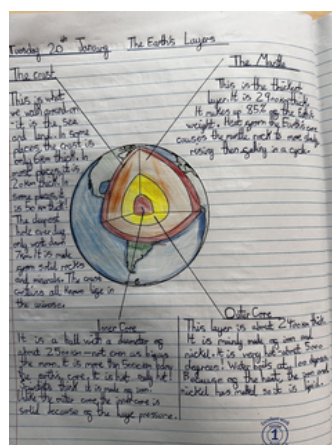 Tuesday 20th January The Earth's Layers
The crust
This is what
we walk
land, sea
In some
places, the crust is
only 6km thick. In
most places it is
20km thick. In
some places it
The deepest
hole ever dug
only went down
7km. It is made
solid rocks
and minerals. The crust
contains all known life in
the universe.
The Mantle
This is the thickest
layer. It is 2900km thick.
It makes up 85% of the Earth's
weight. Heat from the Earth's core
causes the mantle rock to move slowly
rising then in a cycle.
Inner Core
It is a ball with a diameter of
about
the moon. It is more than 5000km below
the Earth's It is hot
Scientists think it is made of iron.
Like the outer core, the inner core is
solid because of the huge pressure.
Outer Core
This layer is about thick.
It is mainly made of iron and
nickel. It is very hot about 5000
degrees. Water boils at 100 degrees.
Because of the heat, the iron and
nickel has melted so it is liquid.
1